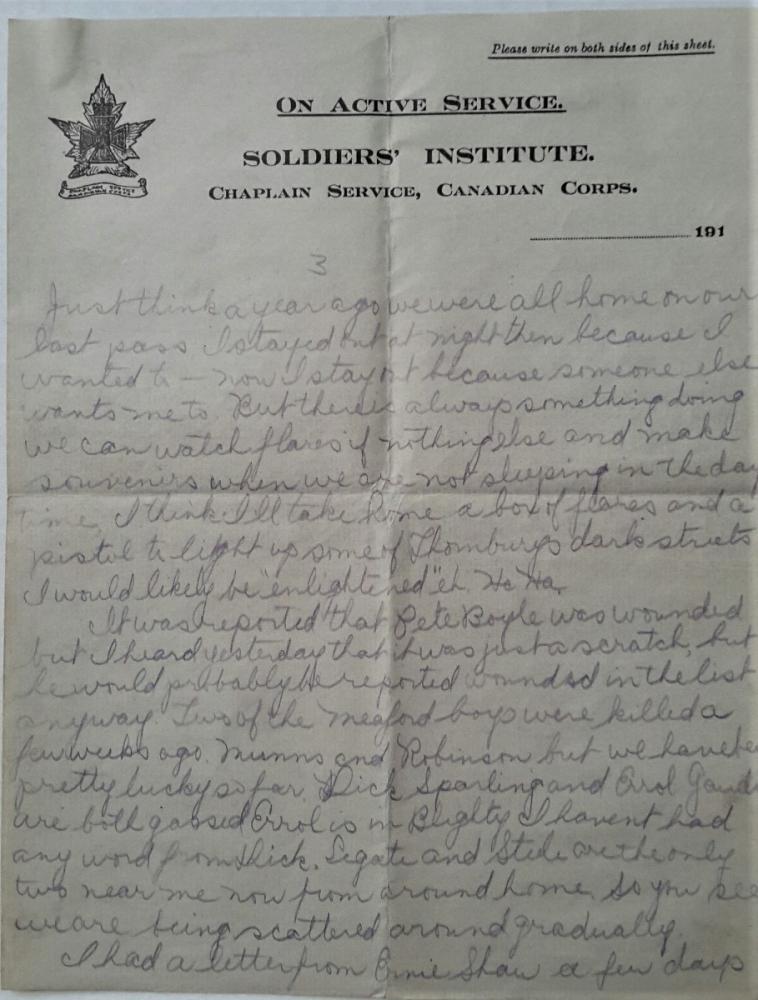 Please write on both sides of this sheet.
ON ACTIVE SERVICE.
SOLDIERS' INSTITUTE.
CHAPLAIN SERVICE, CANADIAN CORPS.
191
3
Just think a year ago we were all home on our
last pass I stayed out at night then because I
wanted to – now I stay out because someone else
wants me to. But there is always something doing
we can watch flares if nothing else and make
souvenirs when we are not sleeping in the day
time. I think I'll take home a box of flares and a
pistol to light up some of Thornburys dark streets
I would likely be "enlightened" eh. Ha Ha.
It was reported that Pete Boyle was wounded
but I heard yesterday that it was just a scratch, but
he would probably be reported wounded in the list
anyway. Two of the Meaford boys were killed a
few weeks ago. Munns and Robinson but we have been
pretty lucky so far. Dick Sparling and Errol
are both gassed Errol is in Blighty I havent had
any word from Dick. Legate and Steele are the only
two near me now from around home. So you see
we are being scattered around gradually.
I had a letter from Ernie Shaw a few days